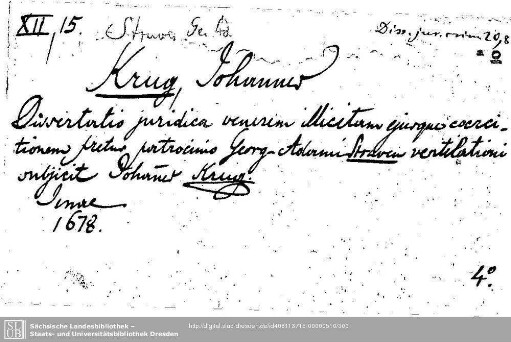 XII, 15 Struve, Ge. Ad. Diss. jur. crim 20,8
Krug, Johannes
Dissertatio juridica venerem illicitam ejusque coerci-
tionem fretus patrocinio Georg-Adami Struven ventilationi
subjicit Johañes Krug.
Jenae
1678.
4°.
SLUB
Sächsische Landesbibliothek –
Staats- und Universitätsbibliothek Dresden